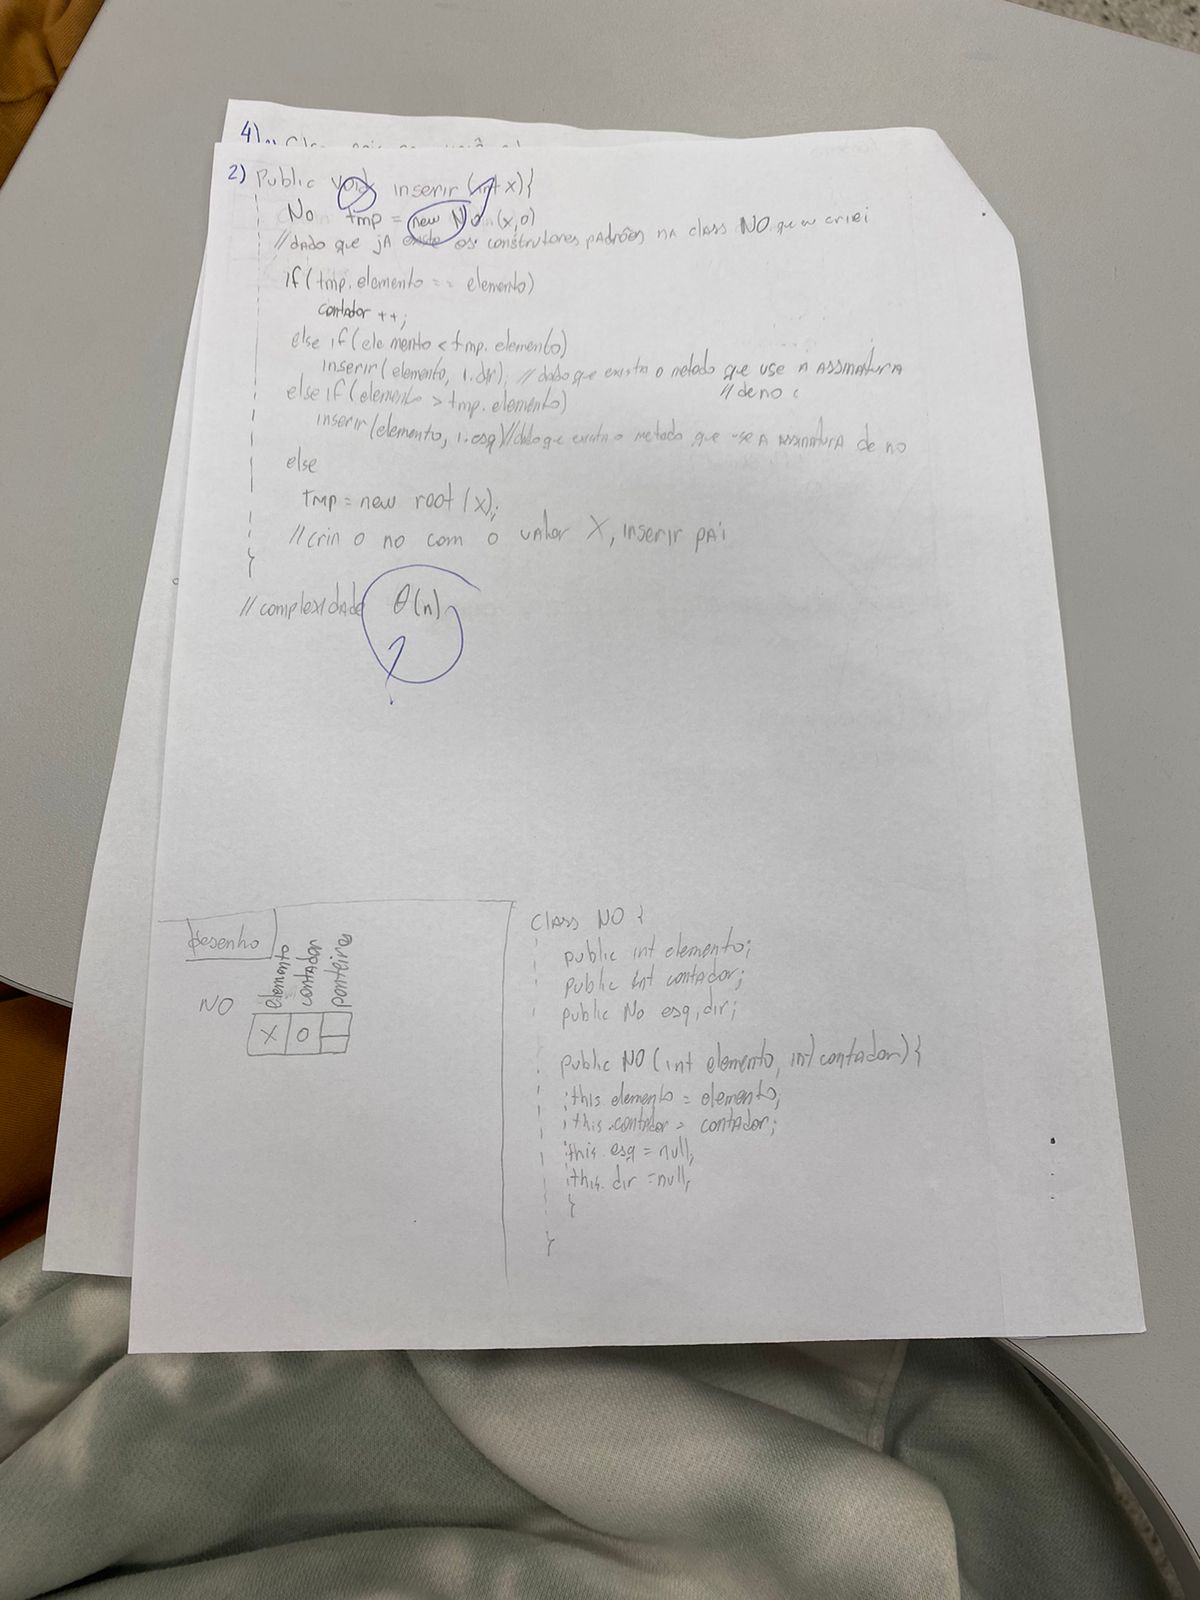 4)
2) Public void inserir (int x){
No tmp = new No (x,0)
// dado que jA existe os construtores pAdrões nA class NO que eu criei
if (tmp.elemento == elemento)
contador ++;
else if (elemento < tmp.elemento)
inserir (elemento, i.dir); // dado que exista o metodo que use A Assinatura
// de no
else if (elemento > tmp.elemento)
inserir (elemento, i.esq) // dado que exista o metodo que use A Assinatura de no
else
tmp = new root (x);
// cria o no com o valor X, inserir pAi
}
// complexidade θ(n)
?
desenho
elemento
contador
ponteiros
NO
X 0
class NO {
public int elemento;
public int contador;
public No esq, dir;
public NO (int elemento, int contador) {
this elemento = elemento;
this.contador = contador;
this. esq = null;
this. dir = null;
}
}